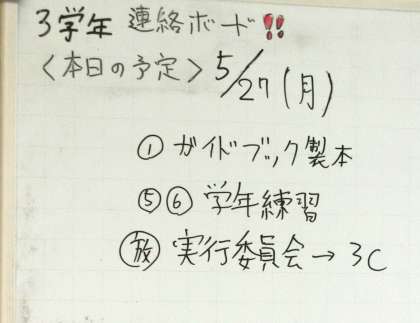 3学年 連絡ボード!!
〈本日の予定〉5/27(月)
① ガイドブック製本
⑤⑥ 学年練習
放 実行委員会→3C